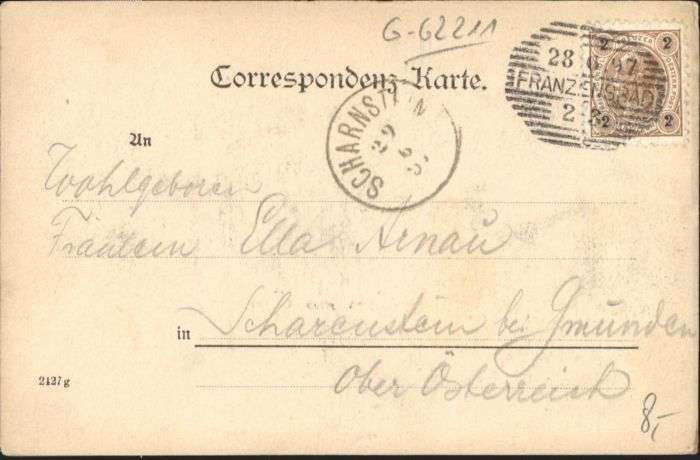 G-62211
2 2
28 6 97
FRANZENSBAD
2
2 2
Correspondenz-Karte.
SCHARNSTEIN
29
An
Wohlgeboren
Fräulein Ella Arnau
in Scharenstein bei Gmunden
Ober Österreich
2427 g
8,-